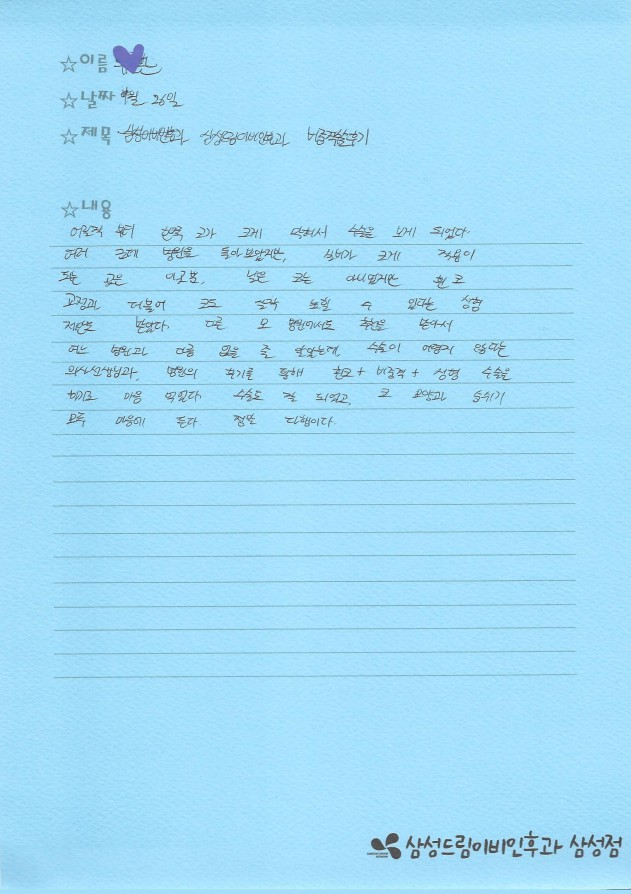 ☆이름
☆날짜 9월 26일
☆제목 삼성드림이비인후과 비중격수술후기
☆내용
어릴적 부터 한쪽 코가 크게 막혀서 수술을 보게 되었다.
여러 군데 병원을 돌아보았지만, 크게
않은 낮은 코는 아니였지만 휜 코
교정과 더불어 코도 살짝 높힐 수 있다는 성형
제안도 받았다. 다른 모 병원에서도 추천을 받아서
어느 병원과 다름 없을 줄 알았는데, 수술이 어렵지 않다는
의사선생님과, 병원의 후기를 통해 휜코 + 비중격 + 성형 수술을
하기로 마음 먹었다. 수술도 잘 되었고, 코 모양과 숨쉬기
모두 마음에 든다 정말 다행이다.
삼성드림이비인후과 삼성점